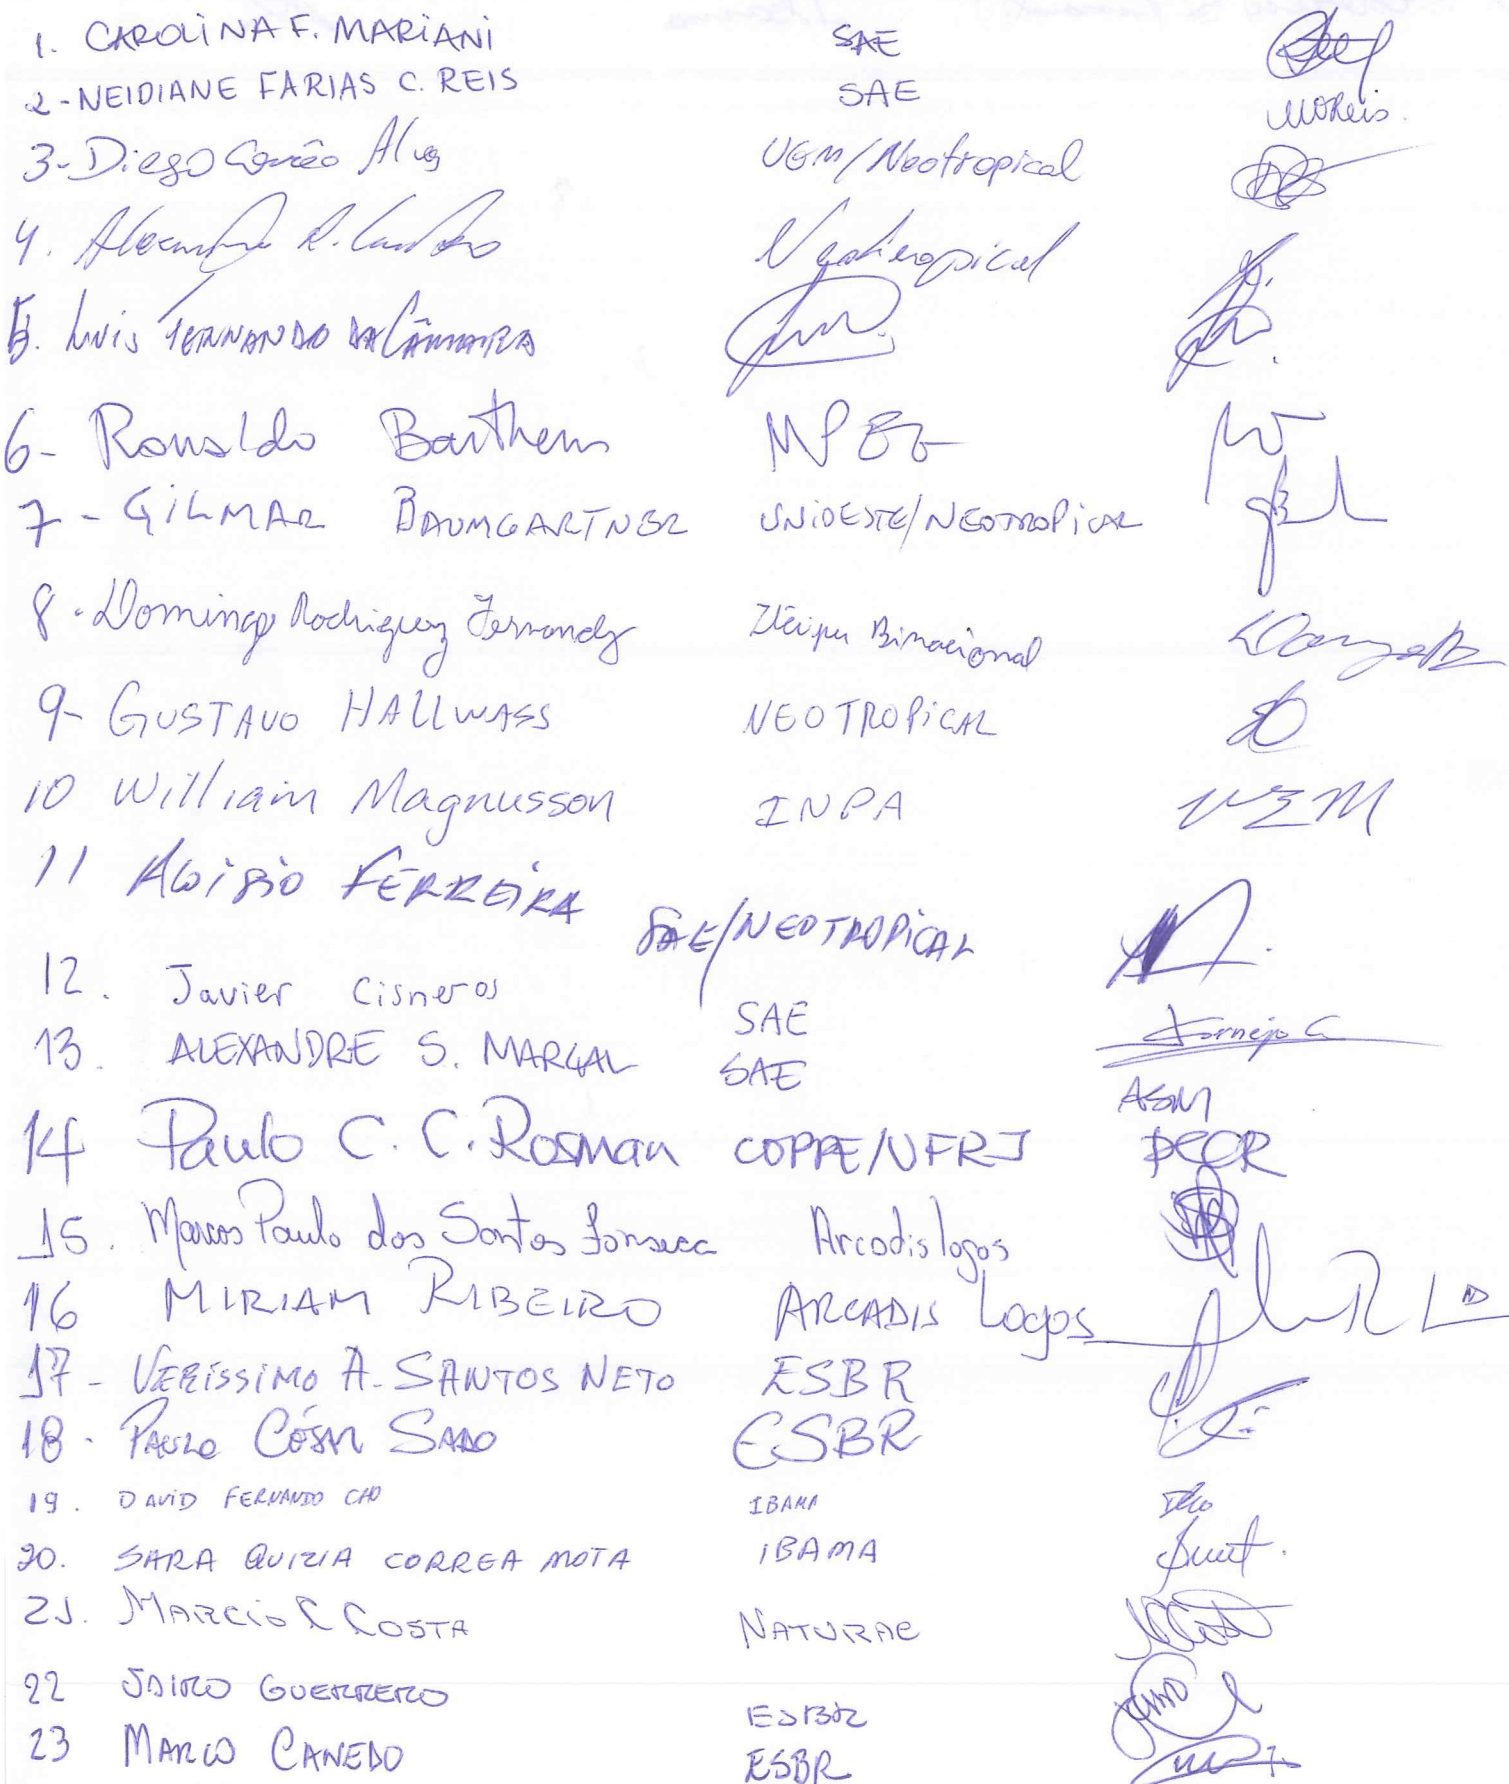 1. CAROLINA F. MARIANI SAE
2-NEIDIANE FARIAS C. REIS SAE MOReis.
3-Diego Alves UEM/Neotropical
4. R. Neotropical
5. Luis FERNANDO DA CÂMARA
6- Ronaldo Barthem MPEG
7- GILMAR BAUMGARTNER UNIOESTE/NEOTROPICAL
8-Domingo Rodriguez Fernandez Itaipu Binacional
9- GUSTAVO HALLWASS NEOTROPICAL
10 William Magnusson INPA WEM
11 Aloisio FERREIRA SAE/NEOTROPICAL
12. Javier Cisneros SAE Cornejo C
13. ALEXANDRE S. MARÇAL SAE ASM
14 Paulo C. C. Rosman COPPE/UFRJ PCCR
15. Marcos Paulo dos Santos Fonseca Arcadis logos
16 MIRIAM RIBEIRO ARCADIS Logos
17- VERISSIMO A. SANTOS NETO ESBR
18- PAULO CÉSAR ESBR
19. DAVID FERNANDO CHO IBAMA
20. SARA QUIZIA CORREA MOTA IBAMA
21. MARCIO C COSTA NATURAE
22 JAIRO GUERRERO ESBR
23 MARCO CANEDO ESBR